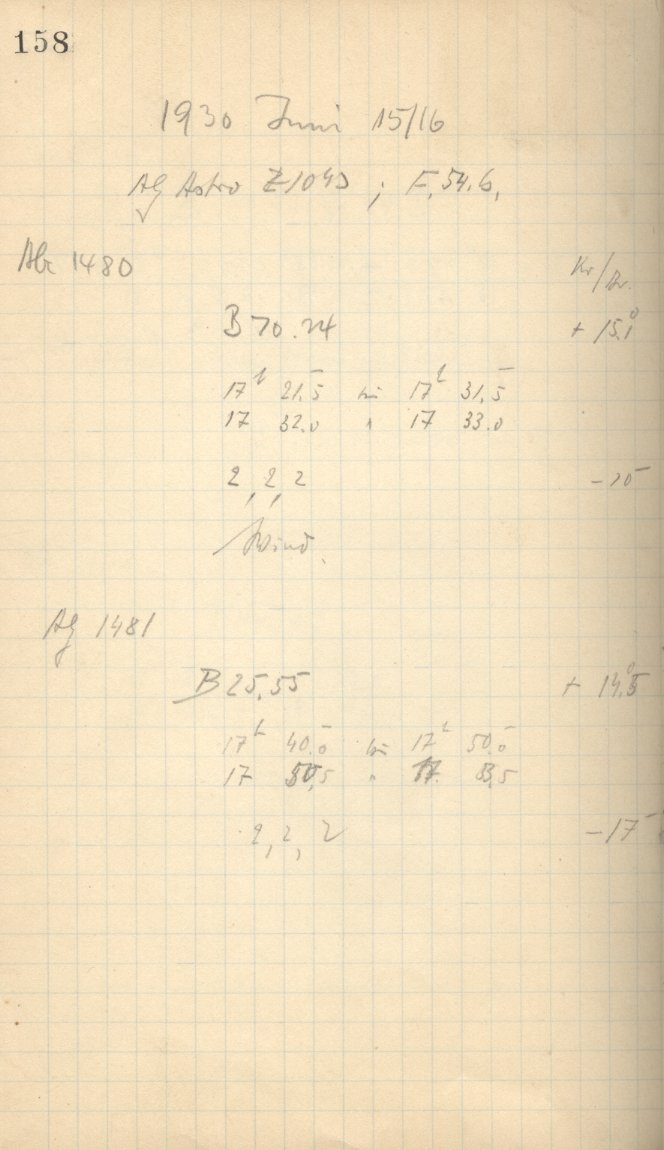 158
1930 Juni 15/16
AG Astro Z 1043 ; F. 54.6,
AG 1480
Kr/Br.
B 70.24 + 15.1°
17h 21.5 bis 17h 31.5
17 32.0 " 17 33.0
2, 2, 2
Wind.
AG 1481
B 25.55 + 14.5°
17h 40.0 bis 17h 50.0
17 50.5 " 17
2, 2, 2 - 17